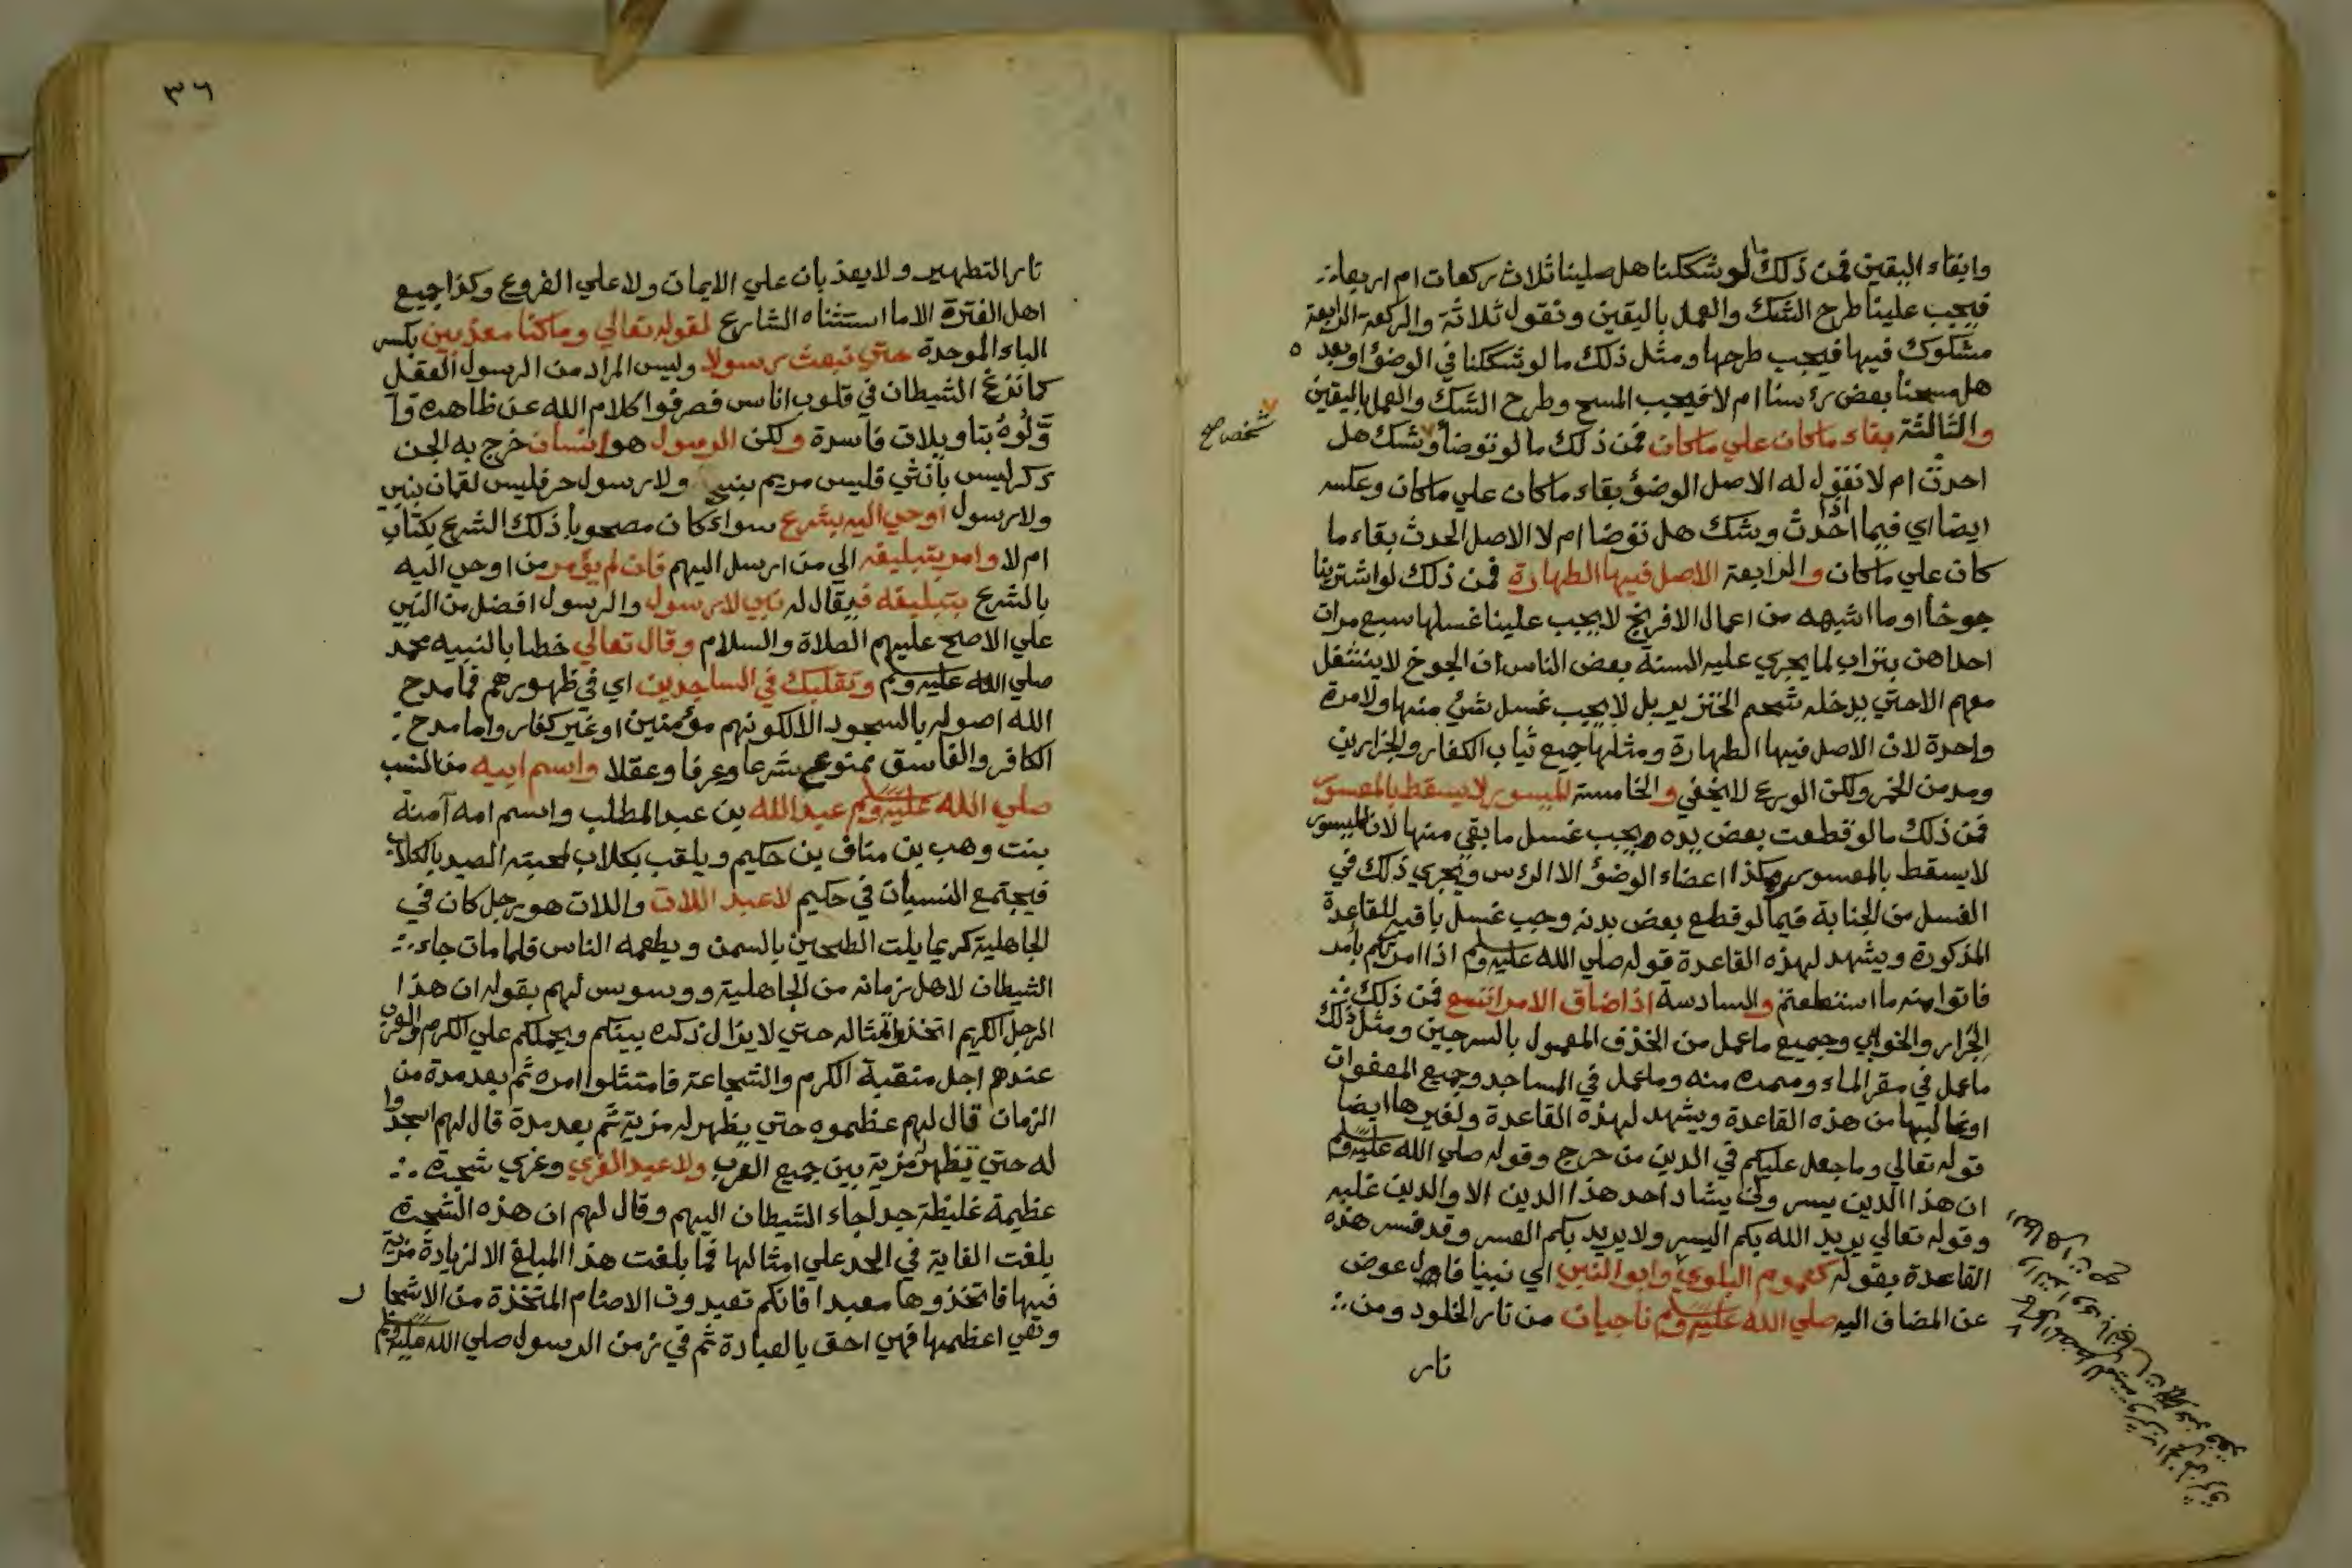 وابقاء اليقين فمن ذلك ما لو شككنا هل صلينا ثلاث ركعات ام اربعا
فيجب علينا طرح الشك والعمل باليقين ونقول ثلاثة والركعة الرابعة
مشكوك فيها فيجب طرحها ومثل ذلك ما لو شككنا في الوضؤ او بعد ه
هل مسحنا بعض رؤسنا ام لا فيجب المسح وطرح الشك والعمل باليقين
والثالثة بقاء ماكان علي ماكان فمن ذلك ما لو توضأ وشك هل
شخص صح
احدث ام لا نقول له الاصل الوضؤ بقاء ماكان علي ماكان وعكسه
ايضا اي فيما اذا احدث وشك هل توضا ام لا الاصل الحدث بقاء ما
كان علي ماكان والرابعة الاصل فيها الطهارة فمن ذلك لو اشترينا
جوخا او ما اشبهه من اعمال الافرنج لا يجب علينا غسلها سبع مرات
احداهن بتراب لما يجري علي السنة بعض الناس ان الجوخ لا ينشغل
معهم الا حتي يدخله شحم الخنزير بل لا يجب غسل شئ منها ولا مرة
واحدة لان الاصل فيها الطهارة ومثلها جميع ثياب الكفار والجزارين
ومدمن الخمر ولكن الورع لا يخفي والخامسة الميسور لا يسقط بالمعسور
فمن ذلك ما لو قطعت بعض يده ويجب غسل ما بقي منها لان الميسور
لا يسقط بالمعسور وهكذا اعضاء الوضؤ الا الراس ويجري ذلك في
الغسل من الجنابة فيما لو قطع بعض بدنه وجب غسل باقيه للقاعدة
المذكورة ويشهد لهذه القاعدة قوله صلي الله عليه وسلم اذا امرتكم بأمر
فاتوا منه ما استطعتم والسادسة اذا ضاق الامر اتسع فمن ذلك
الجرار والخوابي وجميع ما عمل من الخذف المعمول بالسرجين ومثل ذلك
ما عمل في مقر الماء وممره منه وما عمل في المساجد وجميع المعفوات
او غالبها من هذه القاعدة ويشهد لهذه القاعدة ولغيرها ايضا
قوله تعالي وما جعل عليكم في الدين من حرج وقوله صلي الله عليه وسلم
ان هذا الدين يسر ولن يشاد احد هذا الدين الا والدين غلبه
وقوله تعالي يريد الله بكم اليسر ولا يريد بكم العسر وقد فسر هذه
القاعدة بقوله كعموم البلوي وابو النبي اي نبينا فال عوض
عن المضاف اليه صلي الله عليه وسلم ناجيان من نار الخلود ومن
نار
٣٦
نار التطهير ولا يعذبان علي الايمان ولا علي الفروع وكذا جميع
اهل الفترة الا ما استثناه الشارع لقوله تعالي وماكنا معذبين بكسر
الباء الموحدة حتي نبعث رسولا وليس المراد من الرسول العقل
كما نزغ الشيطان في قلوب اناس فصرفوا كلام الله عن ظاهره وا
وّلوه بتاويلات فاسدة ولكن الرسول هو انسان خرج به الجن
ذكر ليس بأنثي فليس مريم بنبي ولا رسول حر فليس لقمان بنبي
ولا رسول اوحي اليه بشرع سواء كان مصحوبا ذلك الشرع بكتاب
ام لا وامر بتبليغه الي من ارسل اليهم فان لم يؤمر من اوحي اليه
بالشرع بتبليغه فيقال له نبي لا رسول والرسول افضل من النبي
علي الاصح عليهم الصلاة والسلام وقال تعالي خطابا لنبيه محمد
صلي الله عليه وسلم وتقلبك في الساجدين اي في ظهورهم فما مدح
الله اصوله بالسجود الا لكونهم مؤمنين او غير كفار واما مدح
الكافر والفاسق ممنوع شرعا وعرفا وعقلا واسم ابيه من النسب
صلي الله عليه وسلم عبد الله بن عبد المطلب واسم امه آمنة
بنت وهب بن مناف بن حكيم ويلقب بكلاب لمحبته الصيد بالكلاب
فيجتمع النسبان في حكيم لا عبد اللات واللات هو رجل كان في
الجاهلية كريما يلت الطحين بالسمن ويطعمه الناس فلما مات جاء
الشيطان لاهل زمانه من الجاهلية ووسوس لهم بقوله ان هذا
الرجل الكريم اتخذوا تمثاله حتي لا يزال ذكره بينكم ويحملكم علي الكرم
عندهم اجل منقبة الكرم والشجاعة فامتثلوا امره ثم بعد مدة من
الزمان قال لهم عظموه حتي يظهر له مزية ثم بعد مدة قال لهم اسجدوا
له حتي تظهر مزية بين جميع العرب ولا عبد العزي وعزي شجرة
عظيمة غليظة جدا جاء الشيطان اليهم وقال لهم ان هذه الشجرة
بلغت الغاية في الحد علي امثالها فما بلغت هذا المبلغ الا لزيادة مزية
فيها فاتخذوها معبدا فانكم تعبدون الاصنام المتخذة من الاشجار
وهي اعظمها فهي احق بالعبادة ثم في زمن الرسول صلي الله عليه وسلم